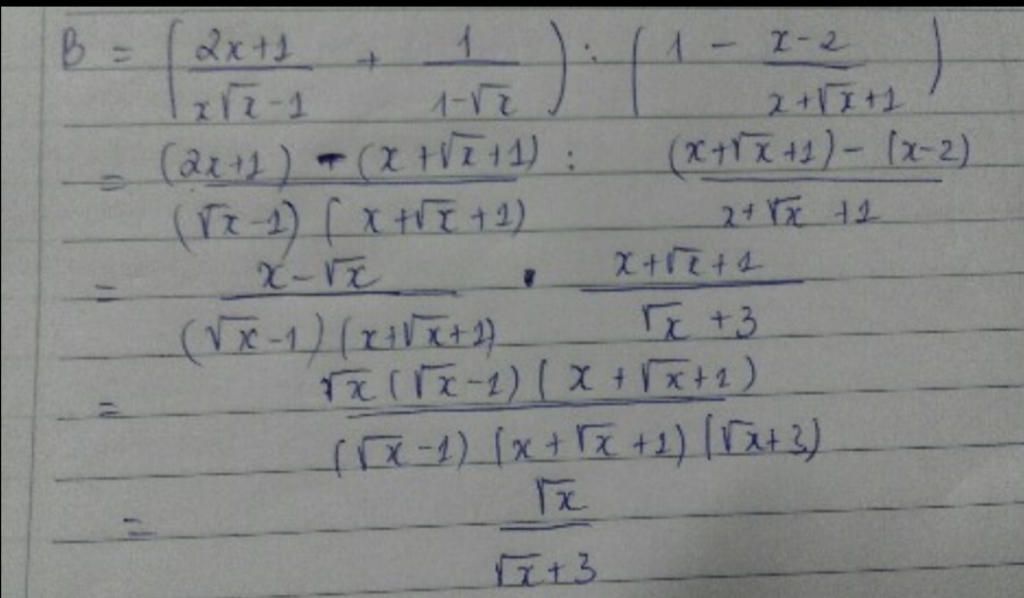 B = ( (2x+1)/(x√x-1) + 1/(1-√x) ) : ( 1 - (x-2)/(x+√x+1) )
= ((2x+1) - (x+√x+1))/((√x-1)(x+√x+1)) : ((x+√x+1)-(x-2))/(x+√x+1)
= (x-√x)/((√x-1)(x+√x+1)) · (x+√x+1)/(√x+3)
= (√x(√x-1)(x+√x+1))/((√x-1)(x+√x+1)(√x+3))
= √x/(√x+3)